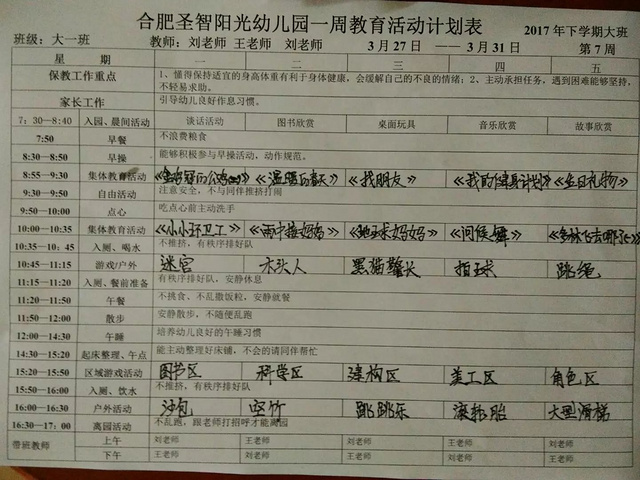 合肥圣智阳光幼儿园一周教育活动计划表
班级：大一班 教师：刘老师 王老师 刘老师 3月27日 ——3月31日 2017年下学期大班 第7周
星 期 一 二 三 四 五
保教工作重点 1、懂得保持适宜的身高体重有利于身体健康，会缓解自己的不良的情绪；2、主动承担任务，遇到困难能够坚持，
不轻易求助。
家长工作 引导幼儿良好作息习惯。
7：30—8:40 入园、晨间活动 谈话活动 图书欣赏 桌面玩具 音乐欣赏 故事欣赏
7:50 早餐 不浪费粮食
8:30—8:50 早操 能够积极参与早操活动，动作规范。
8:55—9:30 集体教育活动 《找朋友》 《我的健身计划》 《生日礼物》
9:30—9:50 自由活动 注意安全，不与同伴推挤打闹
9:50—10:00 点心 吃点心前主动洗手
10:00—10:35 集体教育活动 《小小环卫工》 《雨中接妈妈》 《地球妈妈》 《问候舞》
10:35—10：45 入厕、喝水 不推挤，有秩序排好队
10:45—11:15 游戏/户外 迷宫 木头人 黑猫警长 拍球 跳绳
11:15—11:20 入厕、餐前准备 有秩序排好队，安静休息
11:20—11:50 午餐 不挑食、不乱撒饭粒，安静就餐
11:50—12:00 散步 安静散步，不随便乱跑
12:00—14:30 午睡 培养幼儿良好的午睡习惯
14:30—15:20 起床整理、午点 能主动整理好床铺，不会的请同伴帮忙
15:20—15:50 区域游戏活动 图书区 科学区 建构区 美工区 角色区
15:50—16:00 入厕、饮水 不推挤，有秩序排好队
16:00—16:30 户外活动 沙包 空竹 跳跳乐 滚轮胎 大型滑梯
16:30—17：00 离园活动 不乱跑，跟老师打招呼才能离园
带班教师 上午 刘老师 王老师 刘老师 王老师 刘老师
下午 王老师 刘老师 王老师 刘老师 王老师